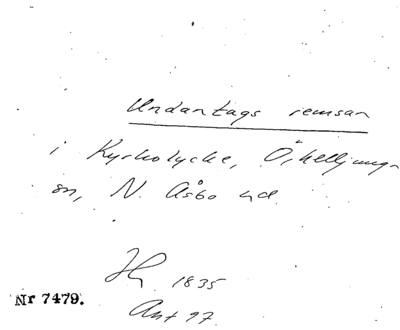 Undantags remsan
i Kyrkolycke, Ö. 
sn, N. Åsbo hd.
1835
Nr 7479.
Ant 97